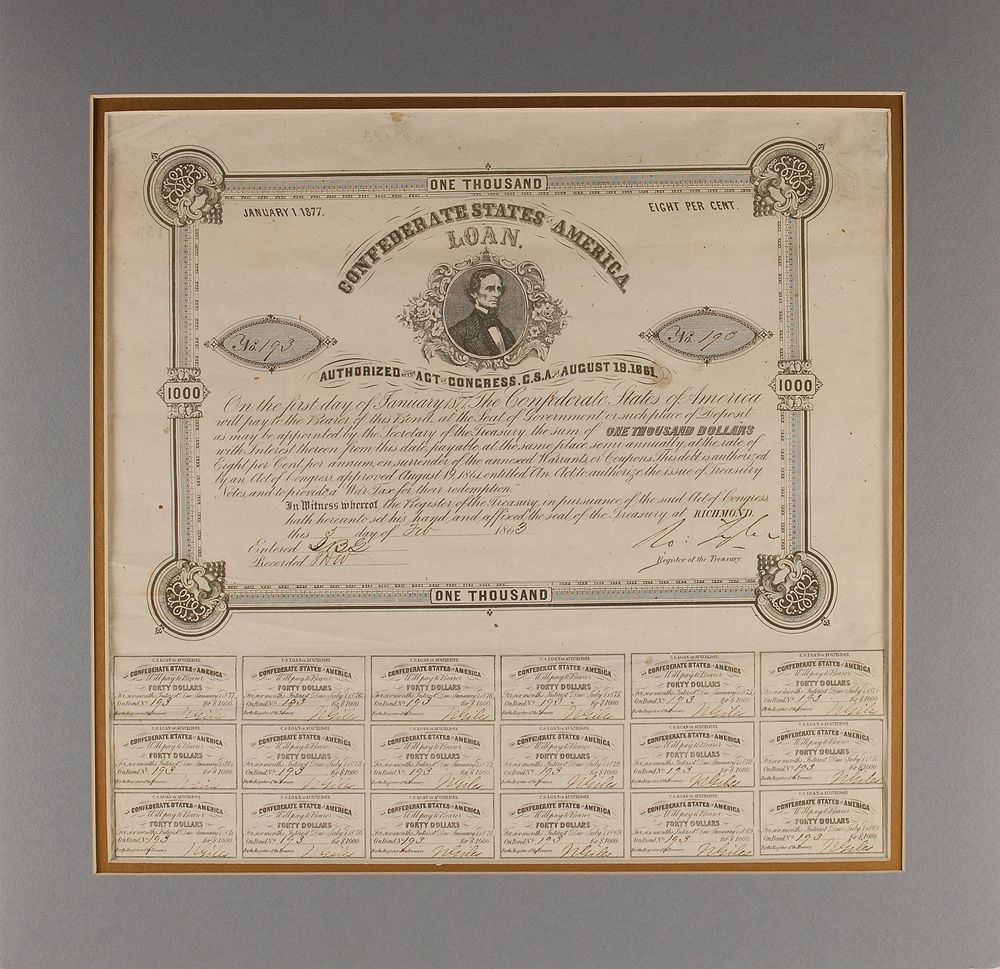 ONE THOUSAND
JANUARY 1. 1877.
EIGHT PER CENT.
CONFEDERATE STATES OF AMERICA
LOAN.
No. 193
No. 190
AUTHORIZED BY THE ACT OF CONGRESS. C.S.A. OF AUGUST 19. 1861.
1000
1000
On the first day of January 1877, The Confederate States of America
will pay to the Bearer of this Bond, at the Seat of Government, or such place of Deposit
as may be appointed by the Secretary of the Treasury, the sum of ONE THOUSAND DOLLARS
with Interest thereon from this date, payable at the same place semi annually, at the rate of
Eight per Cent, per annum, on surrender of the annexed Warrants, or Coupons. This debt is authorized
by an Act of Congress, approved August 19, 1861, entitled "An Act to authorize the issue of Treasury
Notes, and to provide a War Tax for their redemption."
In Witness whereof the Register of the Treasury, in pursuance of the said Act of Congress,
hath hereunto set his hand, and affixed the seal, of the Treasury, at RICHMOND.
this day of Feb 1863
Entered
Recorded
Ro: Tyler
Register of the Treasury.
ONE THOUSAND
C.S. LOAN OF AUG. 19. 1861. C.S. LOAN OF AUG. 19. 1861. C.S. LOAN OF AUG. 19. 1861. C.S. LOAN OF AUG. 19. 1861. C.S. LOAN OF AUG. 19. 1861. C.S. LOAN OF AUG. 19. 1861.
THE CONFEDERATE STATES OF AMERICA THE CONFEDERATE STATES OF AMERICA THE CONFEDERATE STATES OF AMERICA THE CONFEDERATE STATES OF AMERICA THE CONFEDERATE STATES OF AMERICA THE CONFEDERATE STATES OF AMERICA
Will pay to Bearer Will pay to Bearer Will pay to Bearer Will pay to Bearer Will pay to Bearer Will pay to Bearer
FORTY DOLLARS FORTY DOLLARS FORTY DOLLARS FORTY DOLLARS FORTY DOLLARS FORTY DOLLARS
For six months Interest Due January 1. 77. For six months Interest Due July 1. 76. For six months Interest Due January 1. 76. For six months Interest Due July 1. 75. For six months Interest Due January 1. 75. For six months Interest Due July 1.
On Bond No. 193 for $1000. On Bond No. 193 for $1000. On Bond No. 193 for $1000. On Bond No. 193 for $1000. On Bond No. 193 for $1000. On Bond No. 193 for $1000.
For the Register of the Treasury For the Register of the Treasury For the Register of the Treasury For the Register of the Treasury For the Register of the Treasury For the Register of the Treasury
C.S. LOAN OF AUG. 19. 1861. C.S. LOAN OF AUG. 19. 1861. C.S. LOAN OF AUG. 19. 1861. C.S. LOAN OF AUG. 19. 1861. C.S. LOAN OF AUG. 19. 1861. C.S. LOAN OF AUG. 19. 1861.
THE CONFEDERATE STATES OF AMERICA THE CONFEDERATE STATES OF AMERICA THE CONFEDERATE STATES OF AMERICA THE CONFEDERATE STATES OF AMERICA THE CONFEDERATE STATES OF AMERICA THE CONFEDERATE STATES OF AMERICA
Will pay to Bearer Will pay to Bearer Will pay to Bearer Will pay to Bearer Will pay to Bearer Will pay to Bearer
FORTY DOLLARS FORTY DOLLARS FORTY DOLLARS FORTY DOLLARS FORTY DOLLARS FORTY DOLLARS
For six months Interest Due January For six months Interest Due July 1. 73. For six months Interest Due January 1. 73. For six months Interest Due July 1. 1872. For six months Interest Due January 1. 1872. For six months Interest Due July 1.
On Bond No. 193 for $1000. On Bond No. 193 for $1000. On Bond No. 193 for $1000. On Bond No. 193 for $1000. On Bond No. 193 for $1000. On Bond No. 193 for $1000.
For the Register of the Treasury For the Register of the Treasury For the Register of the Treasury N Giles For the Register of the Treasury N Giles For the Register of the Treasury N Giles For the Register of the Treasury N Giles
C.S. LOAN OF AUG. 19. 1861. C.S. LOAN OF AUG. 19. 1861. C.S. LOAN OF AUG. 19. 1861. C.S. LOAN OF AUG. 19. 1861. C.S. LOAN OF AUG. 19. 1861. C.S. LOAN OF AUG. 19. 1861.
THE CONFEDERATE STATES OF AMERICA THE CONFEDERATE STATES OF AMERICA THE CONFEDERATE STATES OF AMERICA THE CONFEDERATE STATES OF AMERICA THE CONFEDERATE STATES OF AMERICA THE CONFEDERATE STATES OF AMERICA
Will pay to Bearer Will pay to Bearer Will pay to Bearer Will pay to Bearer Will pay to Bearer Will pay to Bearer
FORTY DOLLARS FORTY DOLLARS FORTY DOLLARS FORTY DOLLARS FORTY DOLLARS FORTY DOLLARS
For six months Interest Due January 1. 71 For six months Interest Due July 1. 1870 For six months Interest Due January 1. 70. For six months Interest Due July 1. 1869 For six months Interest Due January 1. 1869 For six months Interest Due July 1.
On Bond No. 193 for $1000. On Bond No. 193 for $1000. On Bond No. 193 for $1000. On Bond No. 193 for $1000. On Bond No. 193 for $1000. On Bond No. 193 for $1000.
For the Register of the Treasury For the Register of the Treasury For the Register of the Treasury N Giles For the Register of the Treasury N Giles For the Register of the Treasury N Giles For the Register of the Treasury N Giles